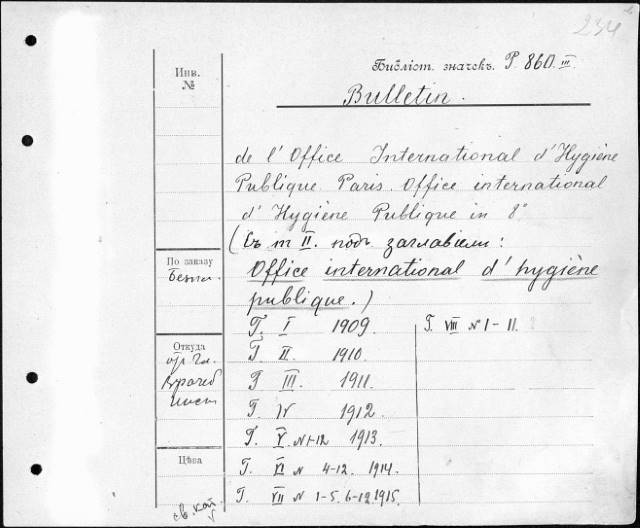 234
Инв.
№
Библіот. значекъ. Р. 860. III.
Bulletin.
de l'Office International d'Hygiène
Publique. Paris. Office international
d'Hygiène Publique in 8°
(Съ т II. подъ заглавіем:
Office international d'hygiène
publique.)
По заказу
Безпл.
Т. I 1909.
Т. VIII № 1-11.
Откуда
Т. II. 1910.
Т III. 1911.
Т. IV 1912.
Т. V. № 1-12 1913.
Цѣна
Т. VI № 4-12. 1914.
Т. VII № 1-5. 6-12 1915.